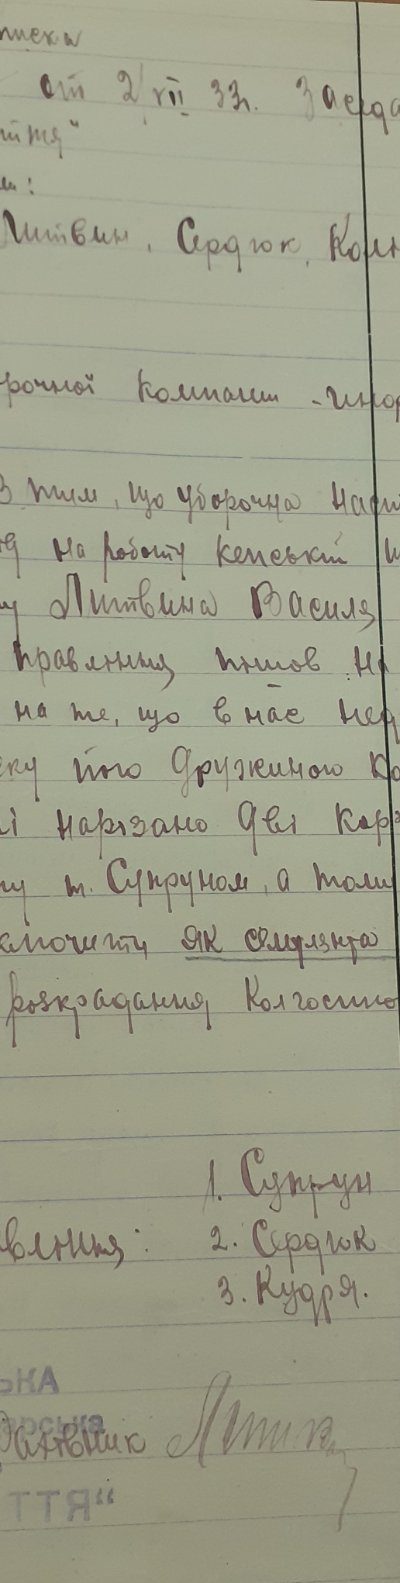 писки
от 2/VII 33р. Заседа
ття"
ли:
Литвин, Сердюк, Кол
рочної компании - инфор
З тим, що уборочна
на роботу кепський
у Литвина Василя
правління пішов на
на те, що в нас нед
ку його дружиною Ко
і нарізано дві кар
ну т. Супруном, а тому
ключити як симулянта
розкрадання колгоспно
1. Супрун
вління: 2. Сердюк
3. Кудря.
ЬКА
арська
ТТЯ"